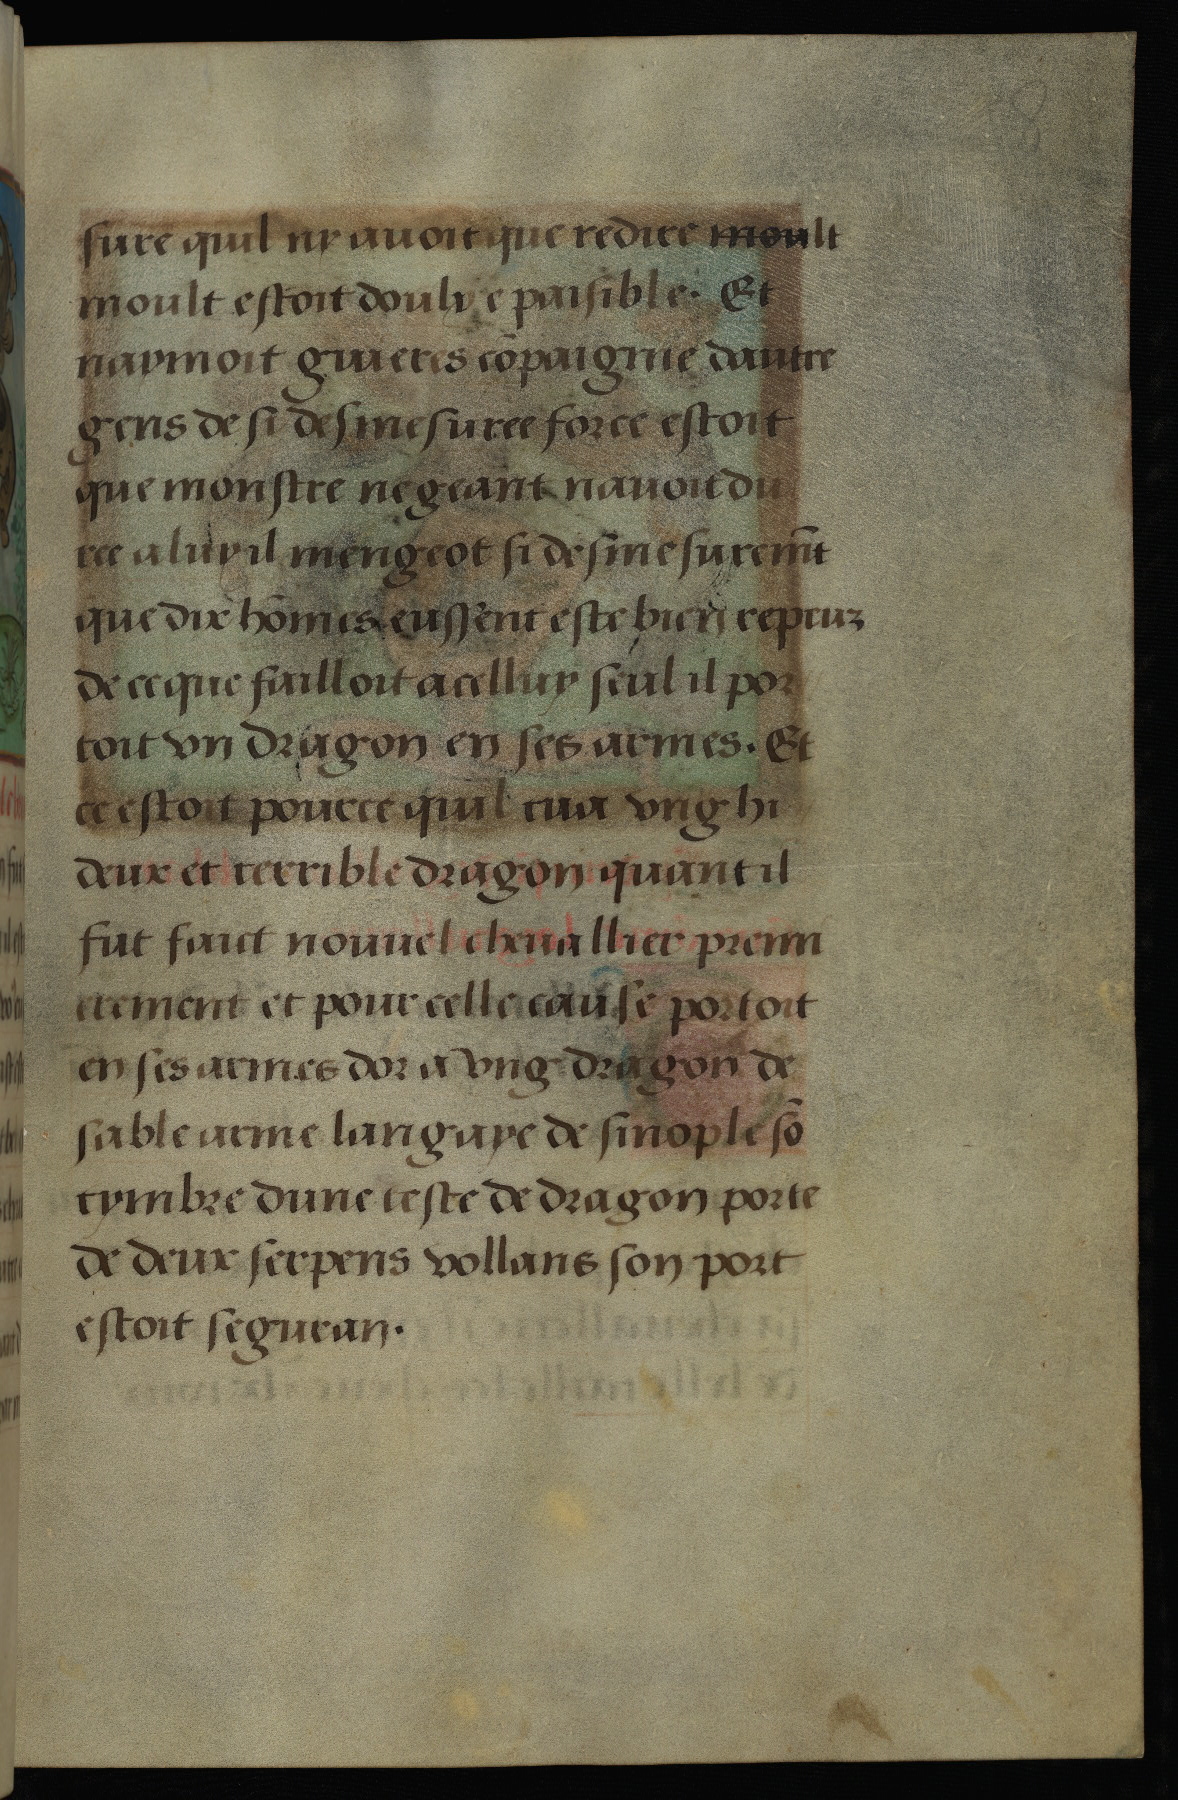 sure quil ny auoit que redire moult
moult estoit doulx e paisible. Et
naymoit guieres cōpaignie dautre
gens de si desmesuree force estoit
que monstre ne geant nauoit du
ree a luy il mengeot si desmesuremēt
que dix hōmes eussent este bien repeuz
de ce que failloit a celluy seul il por
toit vn dragon en ses armes. Et
ce estoit pource quil tua vng hi
deux et terrible dragon quant il
fut faict nouuel cheuallier premi
erement et pour celle cause portoit
en ses armes dor a vng dragon de
sable arme langaye de sinople sō
tymbre dune teste de dragon porte
de deux serpens vollans son port
estoit seguran.